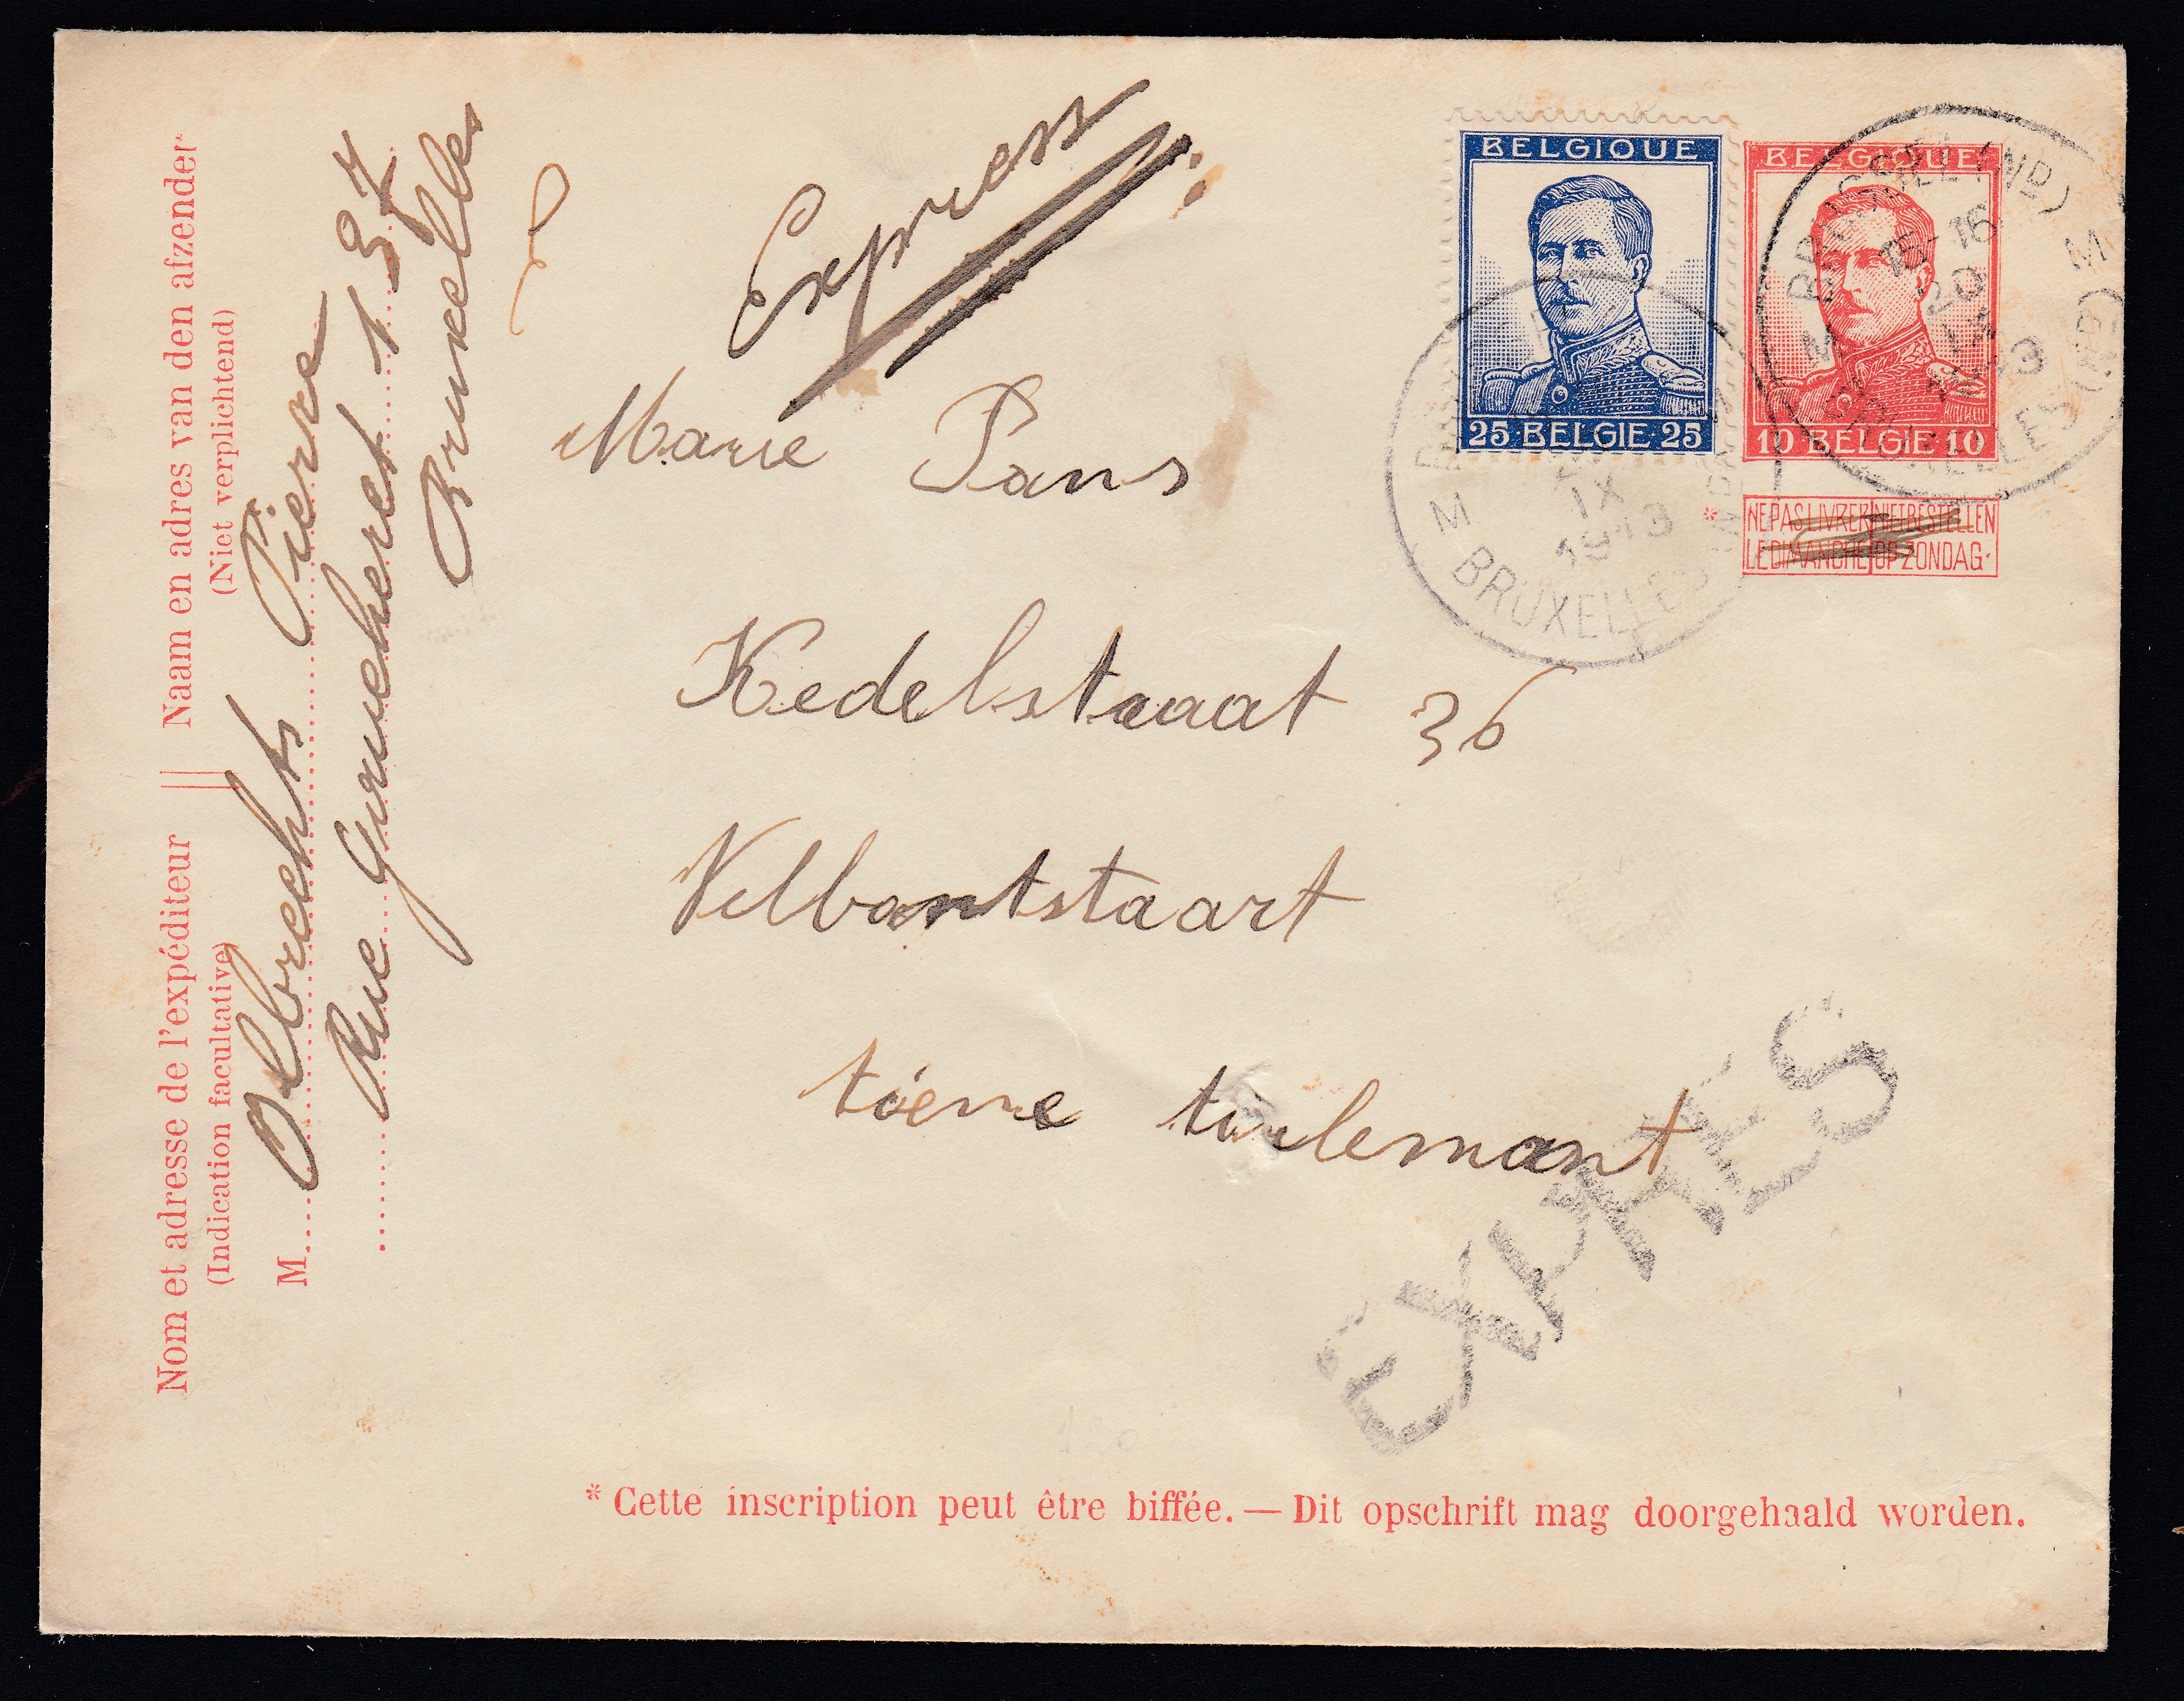 Nom et adresse de l'expéditeur || Naam en adres van den afzender
(Indication facultative) (Niet verplichtend)
M. Olbrechts Pierre
Rue Gruecheret 137
Bruxelles
Express
BELGIQUE
25 BELGIE 25
BELGIQUE
10 BELGIE 10
BRUSSEL (ND)
15-16
20
IX
1913
M M
BRUXELLES (ND)
IX
1913
M
BRUXELLES
* NE PAS LIVRER NIET BESTELLEN
LE DIMANCHE OP ZONDAG.
Marie Pans
Kedelstaaat 36
Velbontstaart
tiene tirlemant
EXPRÈS
* Cette inscription peut être biffée. — Dit opschrift mag doorgehaald worden.